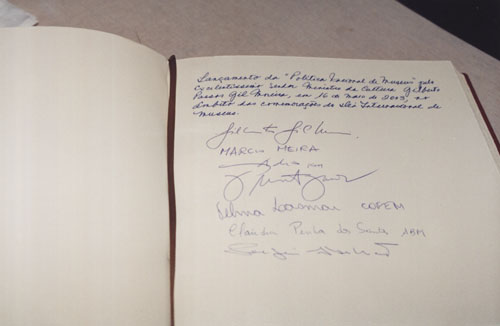 Lançamento da "Política Nacional de Museus" pelo
Excelentíssimo Senhor Ministro da Cultura Gilberto
Passos Gil Moreira, em 16 de maio de 2003, no
âmbito das comemorações do Dia Internacional de
Museus.
Gilberto Gil
MARCIO MEIRA
COFEM
Claudia Penha dos Santos ABM